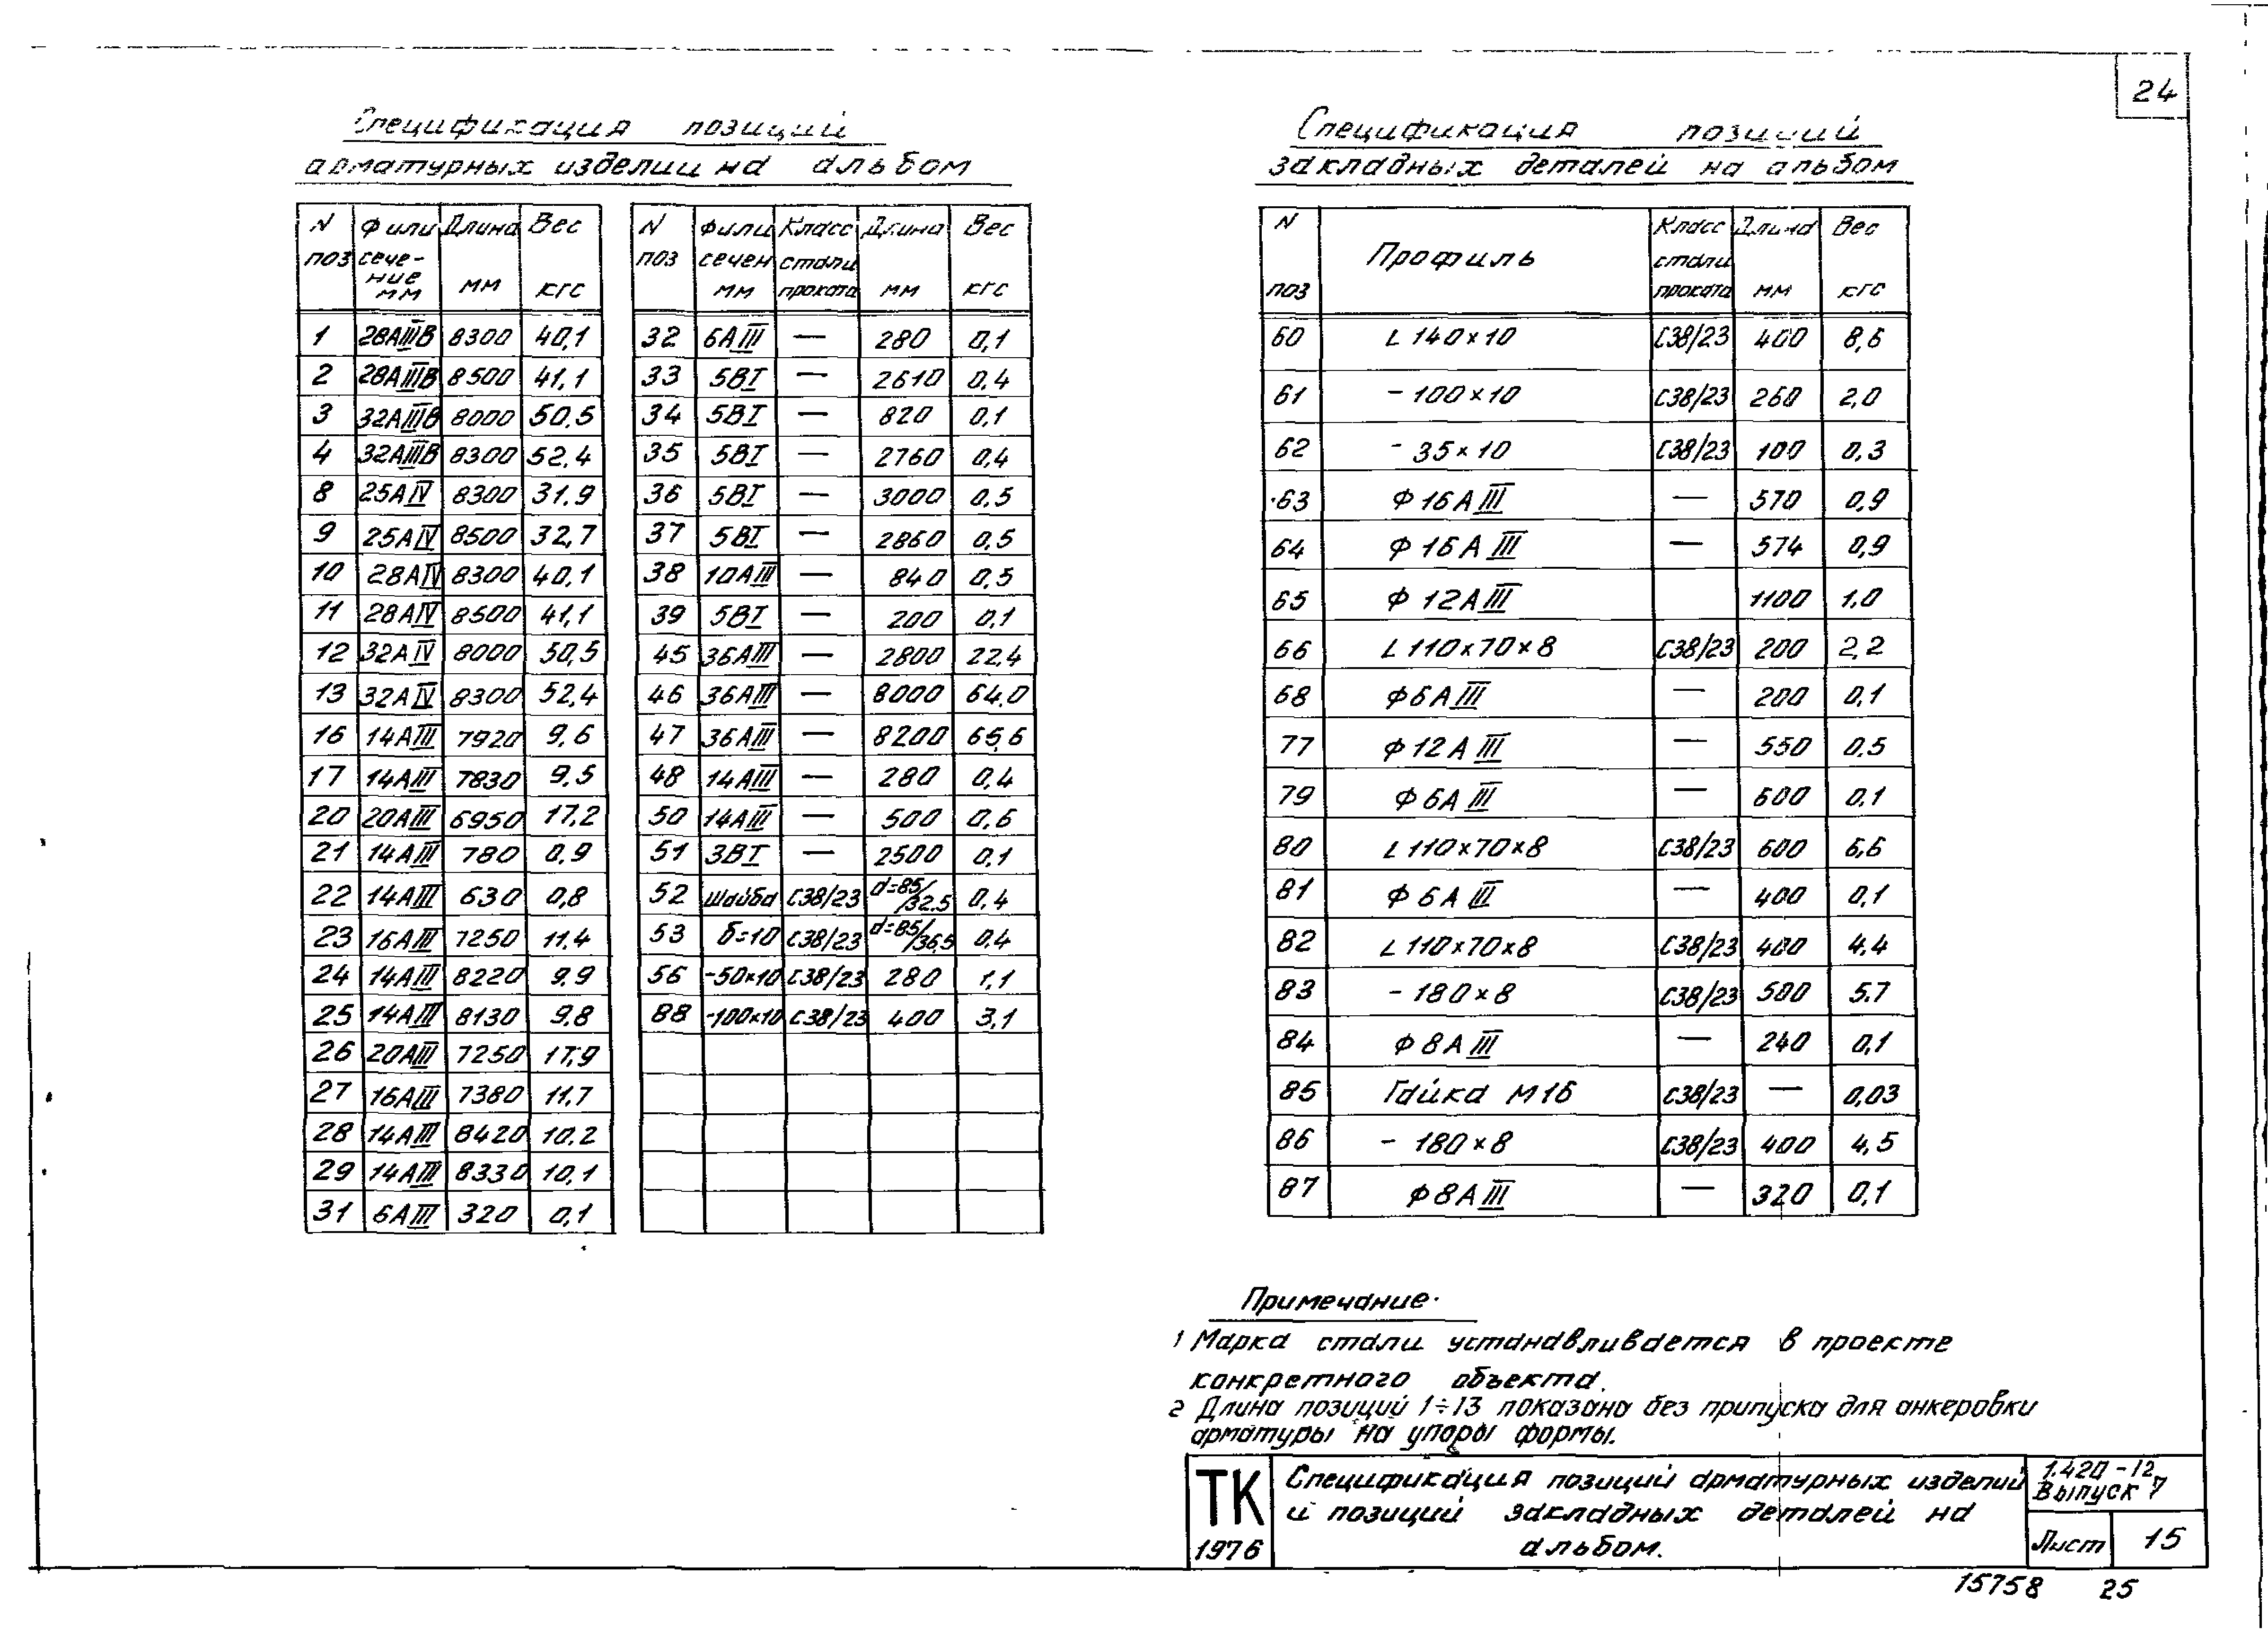 24
Спецификация позиций
арматурных изделии на альбом
N поз | Ф или сечение мм | Длина мм | Вес кгс
1 | 28АIIIВ | 8300 | 40,1
2 | 28АIIIВ | 8500 | 41,1
3 | 32АIIIВ | 8000 | 50,5
4 | 32АIIIВ | 8300 | 52,4
8 | 25АIV | 8300 | 31,9
9 | 25АIV | 8500 | 32,7
10 | 28АIV | 8300 | 40,1
11 | 28АIV | 8500 | 41,1
12 | 32АIV | 8000 | 50,5
13 | 32АIV | 8300 | 52,4
16 | 14АIII | 7920 | 9,6
17 | 14АIII | 7830 | 9,5
20 | 20АIII | 6950 | 17,2
21 | 14АIII | 780 | 0,9
22 | 14АIII | 630 | 0,8
23 | 16АIII | 7250 | 11,4
24 | 14АIII | 8220 | 9,9
25 | 14АIII | 8130 | 9,8
26 | 20АIII | 7250 | 17,9
27 | 16АIII | 7380 | 11,7
28 | 14АIII | 8420 | 10,2
29 | 14АIII | 8330 | 10,1
31 | 6АIII | 320 | 0,1
N поз | Ф или сечен мм | Класс стали проката | Длина мм | Вес кгс
32 | 6АIII | — | 280 | 0,1
33 | 5ВI | — | 2610 | 0,4
34 | 5ВI | — | 820 | 0,1
35 | 5ВI | — | 2760 | 0,4
36 | 5ВI | — | 3000 | 0,5
37 | 5ВI | — | 2860 | 0,5
38 | 10АIII | — | 840 | 0,5
39 | 5ВI | — | 200 | 0,1
45 | 36АIII | — | 2800 | 22,4
46 | 36АIII | — | 8000 | 64,0
47 | 36АIII | — | 8200 | 65,6
48 | 14АIII | — | 280 | 0,4
50 | 14АIII | — | 500 | 0,6
51 | 3ВI | — | 2500 | 0,1
52 | Шайба | С38/23 | d=85/32.5 | 0,4
53 | δ=10 | С38/23 | d=85/36,5 | 0,4
56 | -50×10 | С38/23 | 280 | 1,1
88 | -100×10 | С38/23 | 400 | 3,1
Спецификация позиций
закладных деталей на альбом
N поз | Профиль | Класс стали проката | Длина мм | Вес кгс
60 | L 140×10 | С38/23 | 400 | 8,6
61 | - 100×10 | С38/23 | 260 | 2,0
62 | - 35×10 | С38/23 | 100 | 0,3
63 | Ф 16АIII | — | 570 | 0,9
64 | Ф 16АIII | — | 574 | 0,9
65 | Ф 12АIII | 1100 | 1,0
66 | L 110×70×8 | С38/23 | 200 | 2,2
68 | Ф6АIII | — | 200 | 0,1
77 | Ф12АIII | — | 550 | 0,5
79 | Ф6АIII | — | 600 | 0,1
80 | L 110×70×8 | С38/23 | 600 | 6,6
81 | Ф 6АIII | — | 400 | 0,1
82 | L 110×70×8 | С38/23 | 400 | 4,4
83 | - 180×8 | С38/23 | 500 | 5.7
84 | Ф 8АIII | — | 240 | 0,1
85 | Гайка М16 | С38/23 | — | 0,03
86 | - 180×8 | С38/23 | 400 | 4,5
87 | Ф8АIII | — | 320 | 0,1
Примечание.
1 Марка стали устанавливается в проекте
конкретного объекта.
2 Длина позиций 1÷13 показана без припуска для анкеровки
арматуры на упоры формы.
ТК
1976
Спецификация позиций арматурных изделий
и позиций закладных деталей на
альбом.
1.420-12
Выпуск 7
Лист 15
15758 25